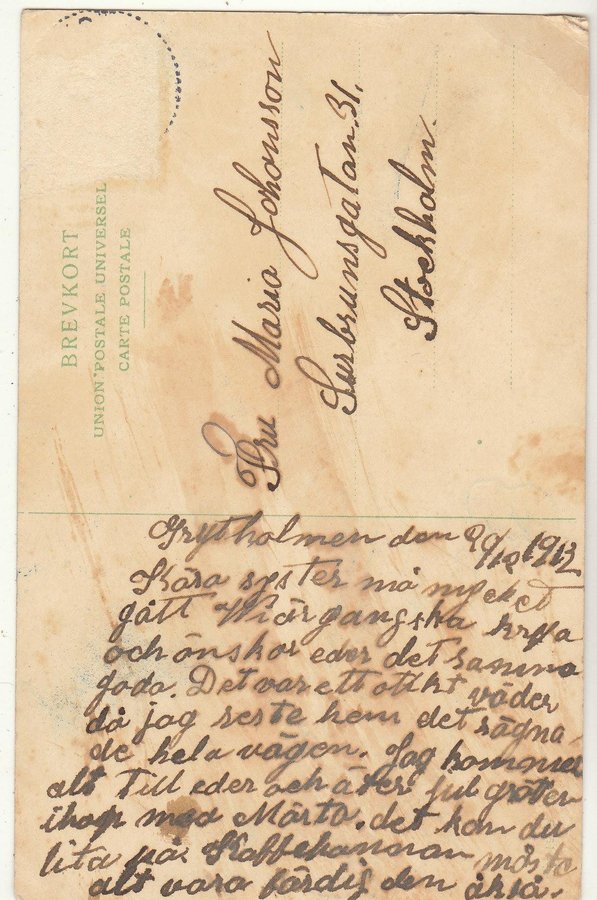 BREVKORT
UNION POSTALE UNIVERSEL
CARTE POSTALE
Fru Maria Johansson
Surbrunsgatan. 31.
Stockholm.
Grytholmen den 20/10 1912
Kära syster må mycket
gått Wi är gangska krya
och önskar eder det samma
goda. Det var ett otikt väder
då jag reste hem det rägna
de hela vägen. Jag kommer
alt till eder och äter jul gröten
ihop med Märta. det kan du
lita på. Kaffekannan måste
alt vara färdig den också.